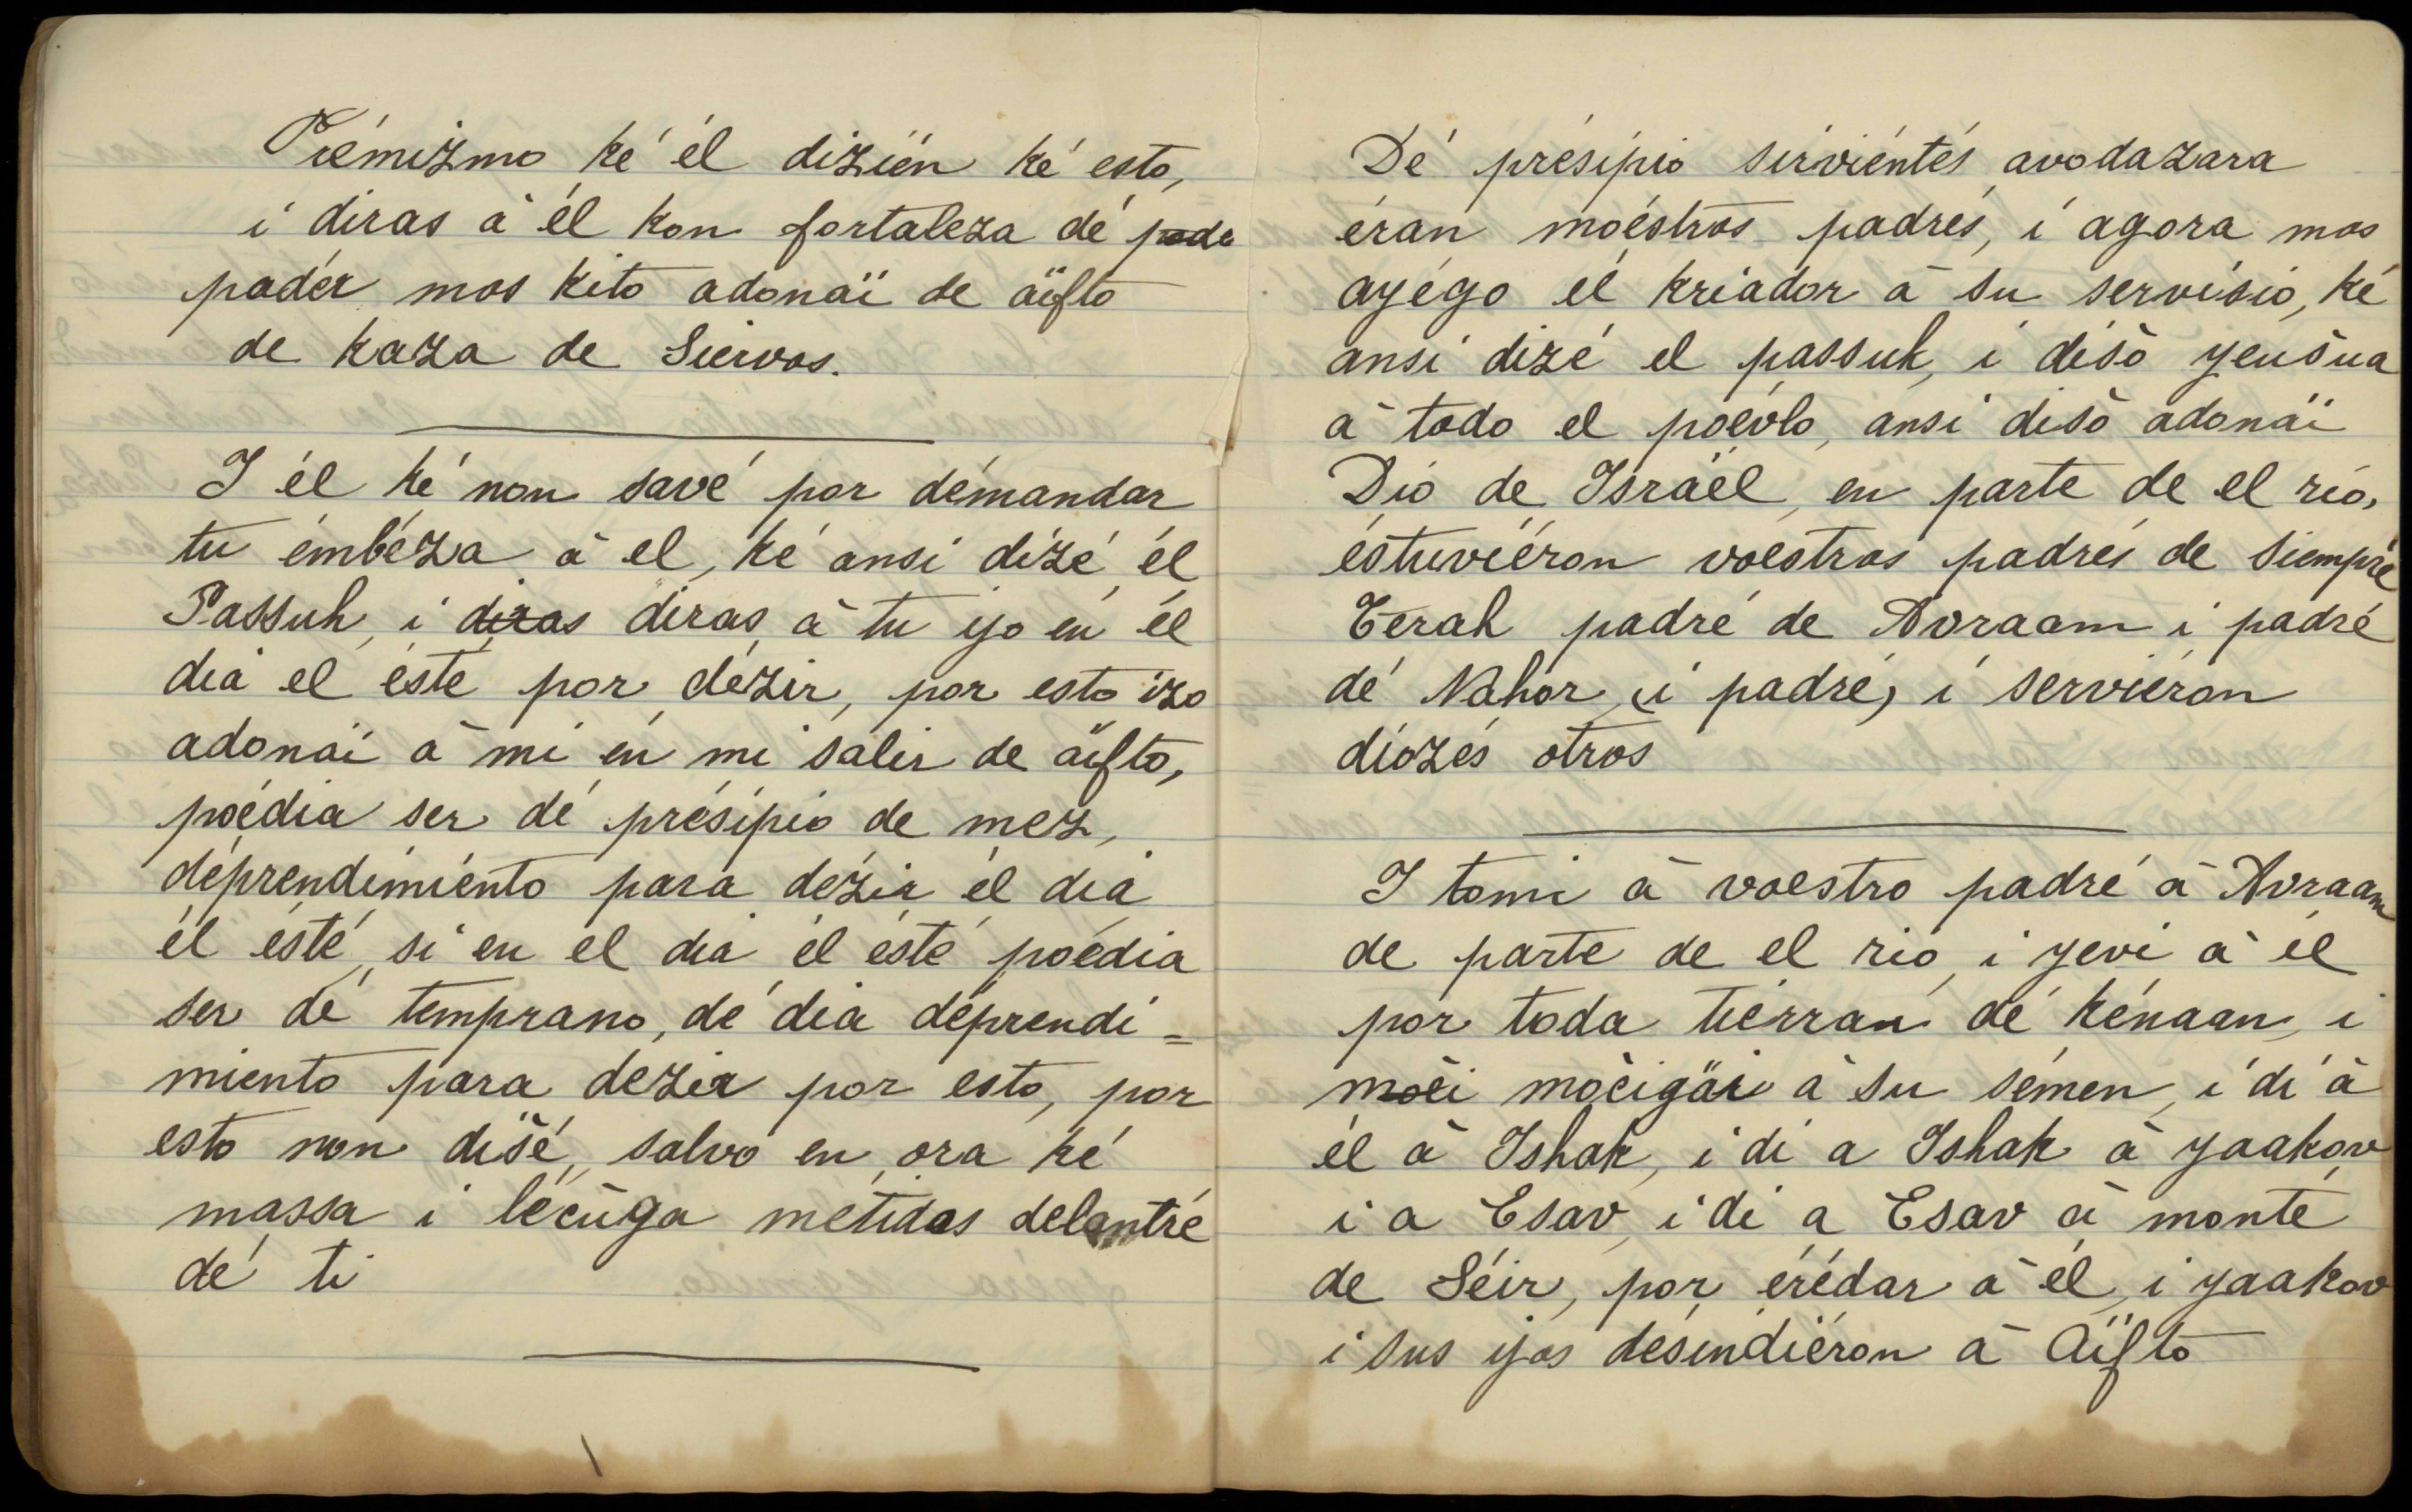 Piémizmo ké él dizién ké esto,
i diras à él kon fortaleza dé pode
podér mos kito adonaï de aïfto
de kaza de Siervos.
I él ké non savé por démandar
tu émbéza à el, ké ansi dizé él
Passuh, i diras diras à tu ijo en él
dia el éste por dézir, por esto izo
adonaï à mi én mi salir de aïfto,
poédia ser dé présipio de mez,
déprendimiénto para dézir él dia
él ésté, si en el dia él ésté poédia
ser dé temprano, dé dia déprendi=
miento para dezir por esto, por
esto non dišé, salvo en ora ké
massa i léčuga métidas delantré
dé ti
Dé présipio sirviéntés avodazara
éran moéstros padrés, i agora mos
ayégo él kriador à su servisio, ké
ansi dizé el passuk, i dišo yeušua
à todo el poévlo, ansi dišo adonaï
Dio de Israël, en parte de el rio,
éstuviéron voéstros padrés de siempré
Terah padré de Avraam i padré
dé Nahor, (i padré) i serviéron
diozés otros
I tomi à voestro padré à Avraam
de parte de el rio, i yevi à él
por toda tiérran dé kénaan, i
moči močigüi à su sémen, i di à
él à Ishak, i di a Ishak à yaakov
i a Esav, i di a Esav à monté
de Séir, por érédar à él, i yaakov
i sus ijos désindiéron à Aïfto